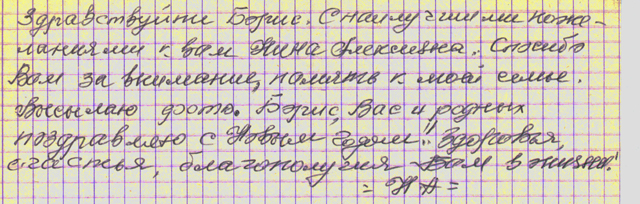 Здравствуйте Борис. С наилучшими поже-
ланиями к вам Нина Алексеевна. Спасибо
Вам за внимание, память к моей семье.
Высылаю фото. Борис, Вас и родных
поздравляю с Новым годом!! Здоровья,
счастья, благополучия Вам в жизни!
= НА =